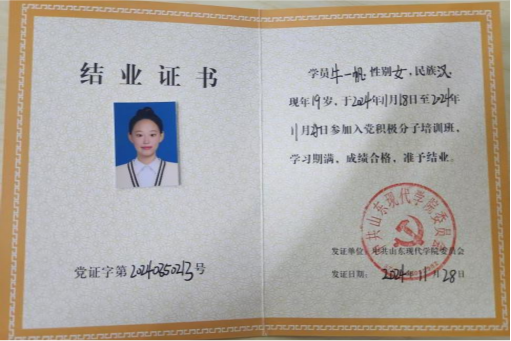 结业证书
党证字第20240350213号
学员牛一帆性别女,民族汉
现年19岁,于2024年11月18日至2024年
11月27日参加入党积极分子培训班,
学习期满,成绩合格,准予结业。
中共山东现代学院委员会
发证单位:中共山东现代学院委员会
发证日期:2024年11月28日